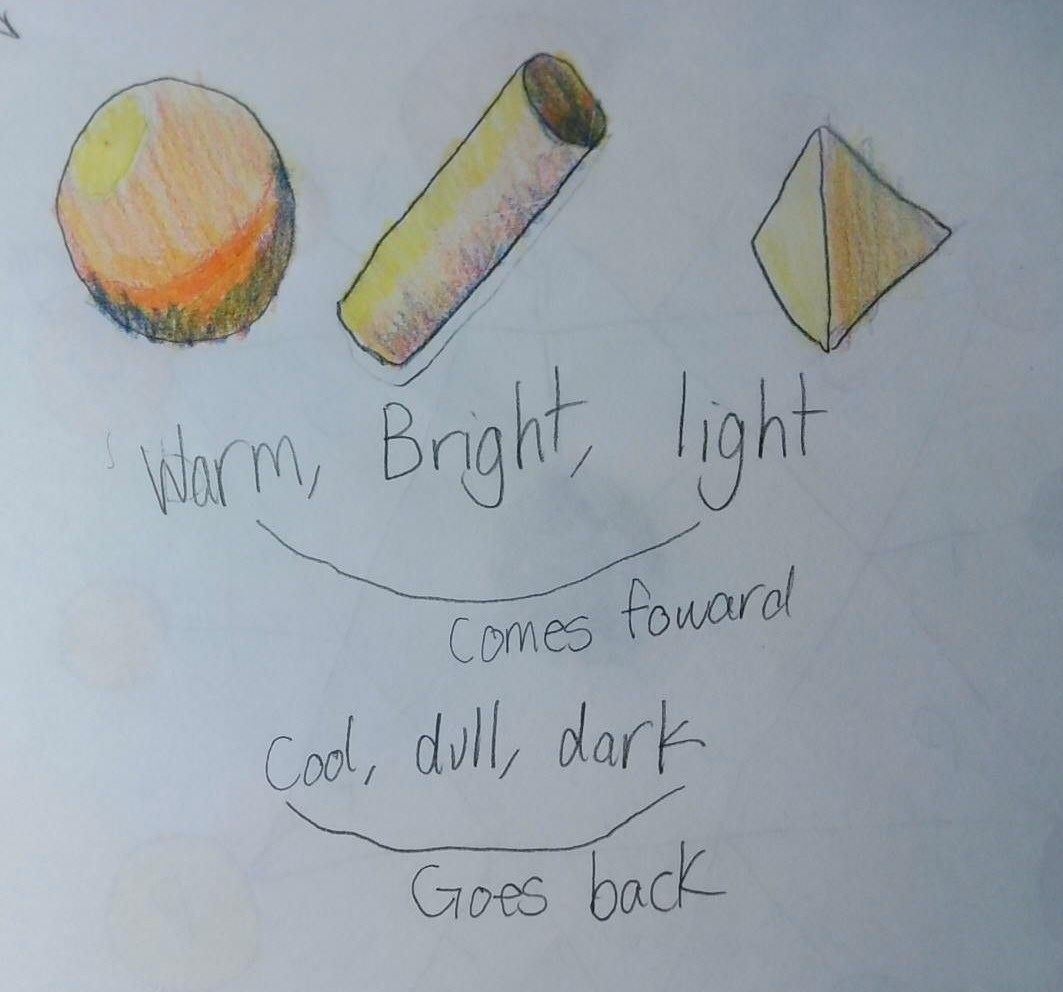 Warm, Bright, light
Comes foward
Cool, dull, dark
Goes back